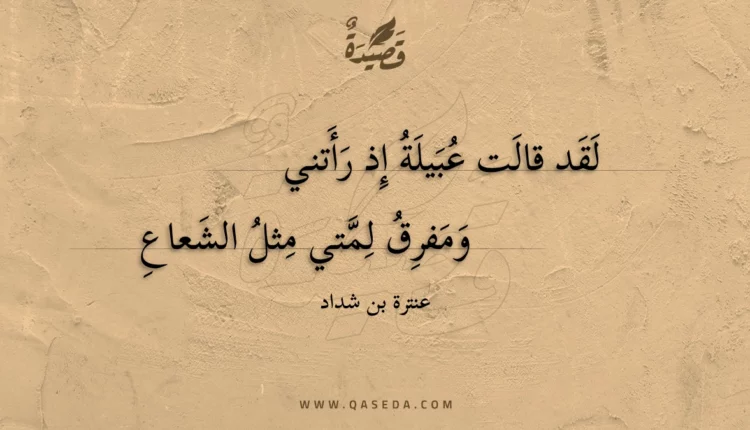 قَصِيدَةٌ
لَقَد قالَت عُبَيلَةُ إِذ رَأَتني
وَمَفرِقُ لِمَّتي مِثلُ الشَعاعِ
عنترة بن شداد
WWW.QASEDA.COM